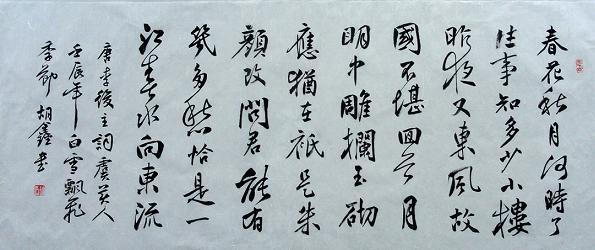 春花秋月何時了
往事知多少小樓
昨夜又東風故
國不堪回首月
明中雕欄玉砌
應猶在祇是朱
顏改問君能有
幾多愁恰是一
江春水向東流
唐李後主詞虞美人
壬辰年白雪飄飛
季節 胡鑫書